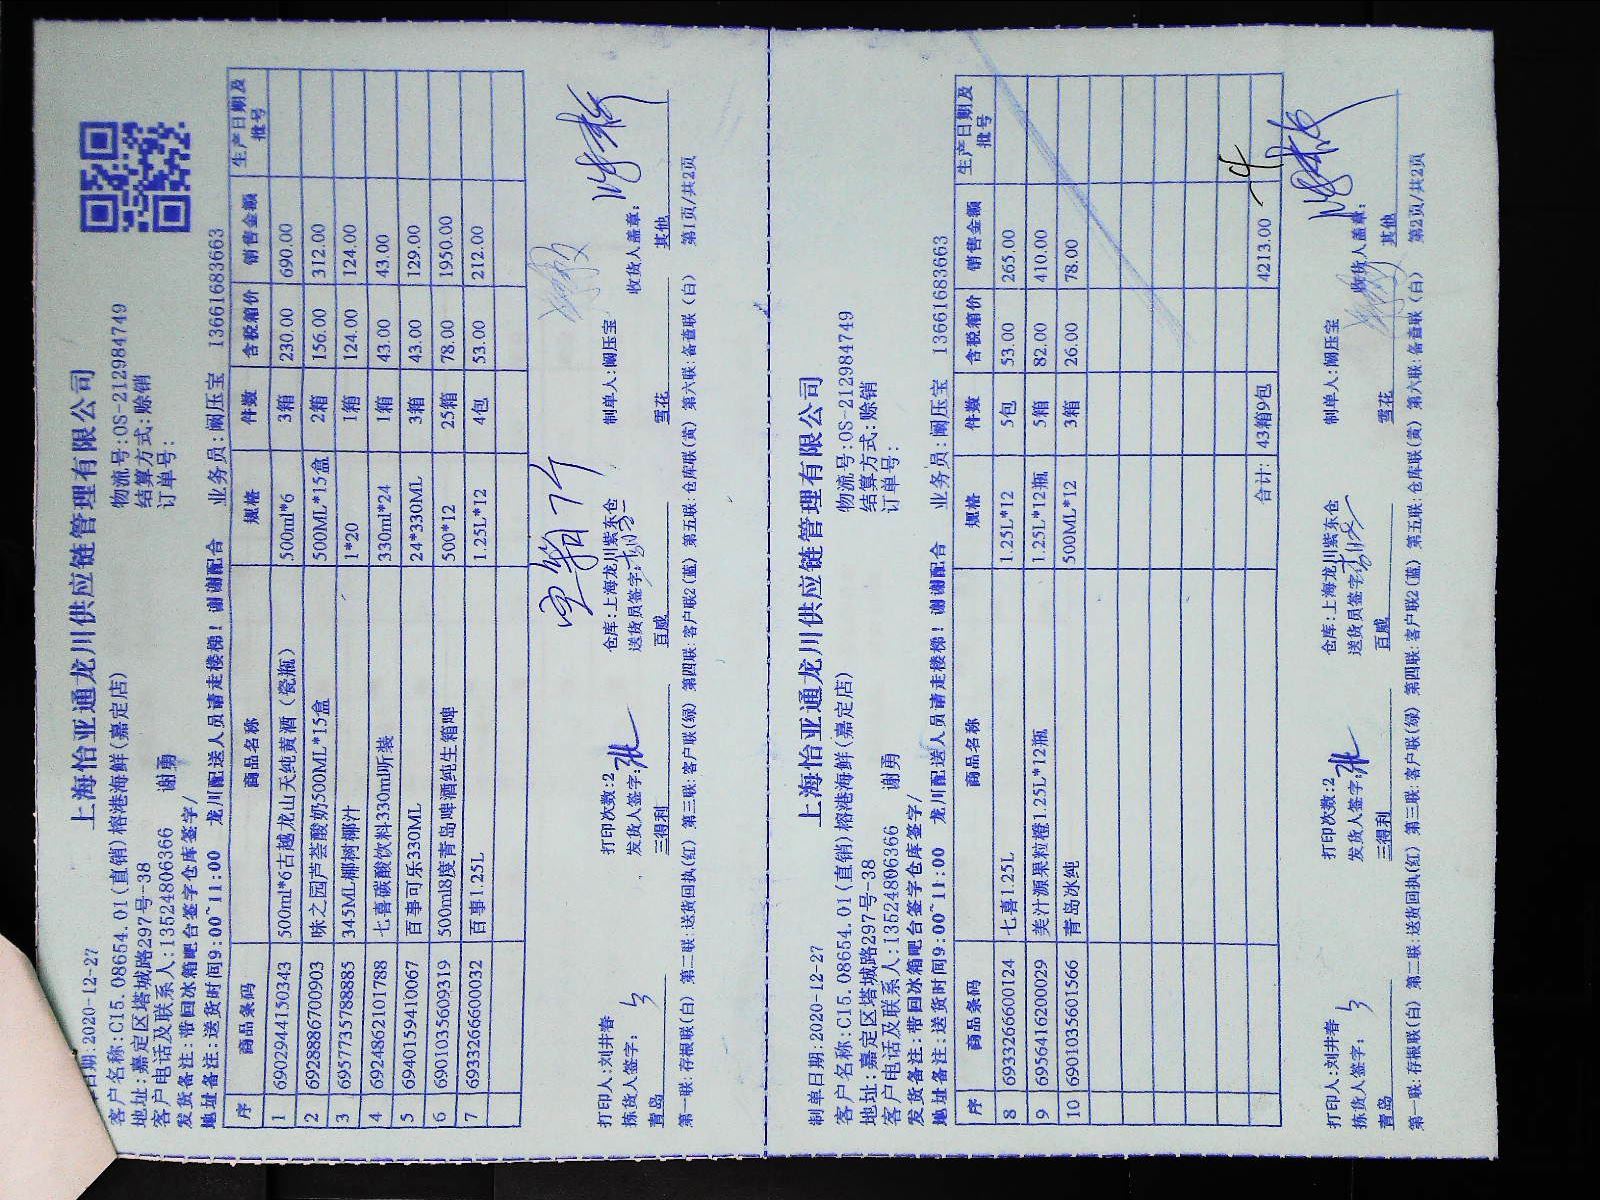 上海怡亚通龙川供应链管理有限公司
日期:2020-12-27 物流号:OS-212984749
客户名称:C15.08654.01(直销)榕港海鲜(嘉定店) 结算方式:赊销
地址:嘉定区塔城路297号-38 订单号:
客户电话及联系人:13524806366 谢勇
发货备注:带回冰箱吧台签字仓库签字/ 业务员:阚压宝 13661683663
地址备注:送货时间9:00~11:00 龙川配送人员请走楼梯!谢谢配合
序 商品条码 商品名称 规格 件数 含税箱价 销售金额 生产日期及批号
1 6902944150343 500ml*6古越龙山天纯黄酒(瓷瓶) 500ml*6 3箱 230.00 690.00
2 6928886700903 味之园芦荟酸奶500ML*15盒 500ML*15盒 2箱 156.00 312.00
3 6957735788885 345ML椰树椰汁 1*20 1箱 124.00 124.00
4 6924862101788 七喜碳酸饮料330ml听装 330ml*24 1箱 43.00 43.00
5 6940159410067 百事可乐330ML 24*330ML 3箱 43.00 129.00
6 6901035609319 500ml8度青岛啤酒纯生箱啤 500*12 25箱 78.00 1950.00
7 6933266600032 百事1.25L 1.25L*12 4包 53.00 212.00
打印人:刘井春 打印次数:2 仓库:上海龙川紫东仓 制单人:阚压宝
拣货人签字: 发货人签字: 送货员签字: 收货人盖章:
青岛 三得利 百威 雪花 其他
第一联:存根联(白) 第二联:送货回执(红) 第三联:客户联(绿) 第四联:客户联2(蓝) 第五联:仓库联(黄) 第六联:备查联(白) 第1页/共2页
上海怡亚通龙川供应链管理有限公司
制单日期:2020-12-27 物流号:OS-212984749
客户名称:C15.08654.01(直销)榕港海鲜(嘉定店) 结算方式:赊销
地址:嘉定区塔城路297号-38 订单号:
客户电话及联系人:13524806366 谢勇
发货备注:带回冰箱吧台签字仓库签字/ 业务员:阚压宝 13661683663
地址备注:送货时间9:00~11:00 龙川配送人员请走楼梯!谢谢配合
序 商品条码 商品名称 规格 件数 含税箱价 销售金额 生产日期及批号
8 6933266600124 七喜1.25L 1.25L*12 5包 53.00 265.00
9 6956416200029 美汁源果粒橙1.25L*12瓶 1.25L*12瓶 5箱 82.00 410.00
10 6901035601566 青岛冰纯 500ML*12 3箱 26.00 78.00
合计: 43箱9包 4213.00
打印人:刘井春 打印次数:2 仓库:上海龙川紫东仓 制单人:阚压宝
拣货人签字: 发货人签字: 送货员签字: 收货人盖章:
青岛 三得利 百威 雪花 其他
第一联:存根联(白) 第二联:送货回执(红) 第三联:客户联(绿) 第四联:客户联2(蓝) 第五联:仓库联(黄) 第六联:备查联(白) 第2页/共2页